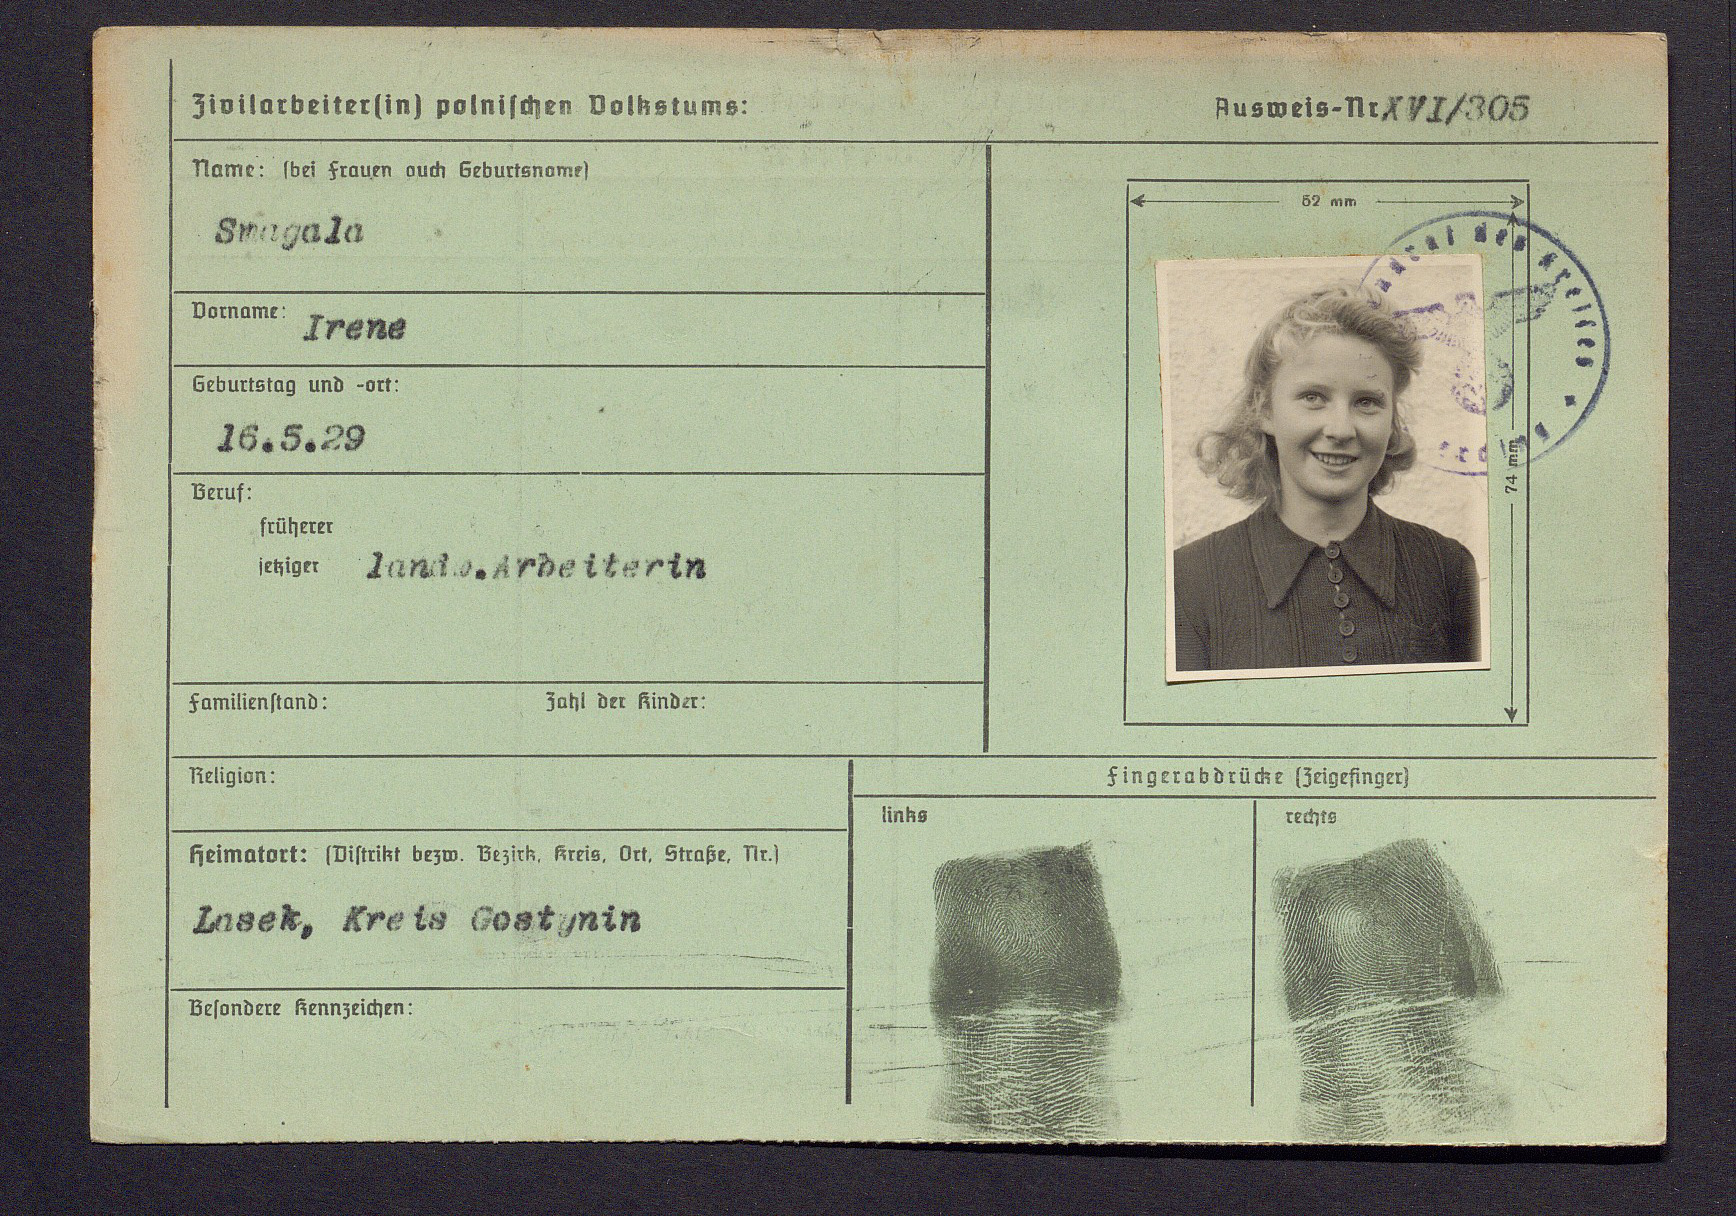 Zivilarbeiter(in) polnischen Volkstums:
Ausweis-Nr XVI/305
Name: (bei Frauen auch Geburtsname)
Smagala
Vorname: Irene
Geburtstag und -ort:
16.5.29
Beruf:
früherer
jetziger landw.Arbeiterin
Familienstand: Zahl der Kinder:
52 mm
74 mm
Landrat des Kreises
Religion:
Heimatort: (Distrikt bezw. Bezirk, Kreis, Ort, Straße, Nr.)
Lasek, Kreis Gostynin
Besondere Kennzeichen:
Fingerabdrücke (Zeigefinger)
links rechts